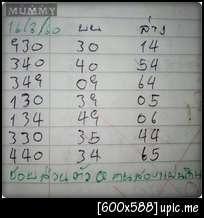 MUMMY
16/3/60 บน ล่าง
930 30 14
340 40 54
349 09 64
130 39 05
134 49 06
330 35 44
440 34 65
[600x588] upic.me